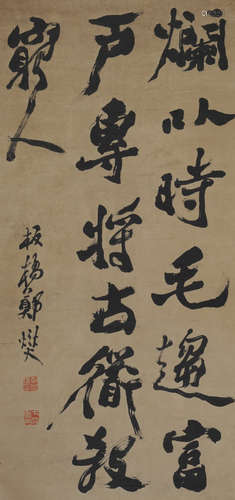 爛以時毛遞富
户專將古籀教
窮人
板橋鄭燮